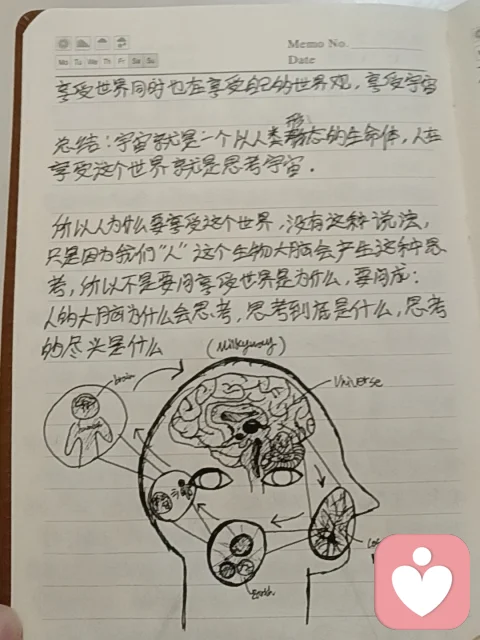 Memo No.
Mo Tu We Th Fr Sa Su
Date
享受世界同时也在享受自己的世界观，享受宇宙
总结：宇宙就是一个以人类形态的生命体，人在
享受这个世界就是思考宇宙。
所以人为什么要享受这个世界，没有这种说法，
只是因为我们“人”这个生物大脑会产生这种思
考，所以不是要问享受世界是为什么，要问成：
人的大脑为什么会思考，思考到底是什么，思考
的尽头是什么
(Milkyway)
brain
Universe
Earth